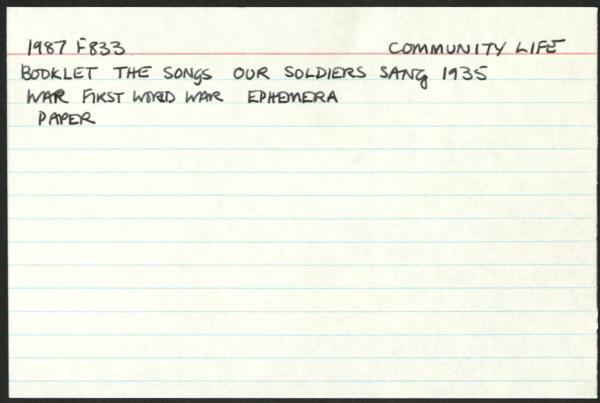 1987 F833 COMMUNITY LIFE
BOOKLET THE SONGS OUR SOLDIERS SANG 1935
WAR FIRST WORLD WAR EPHEMERA
PAPER